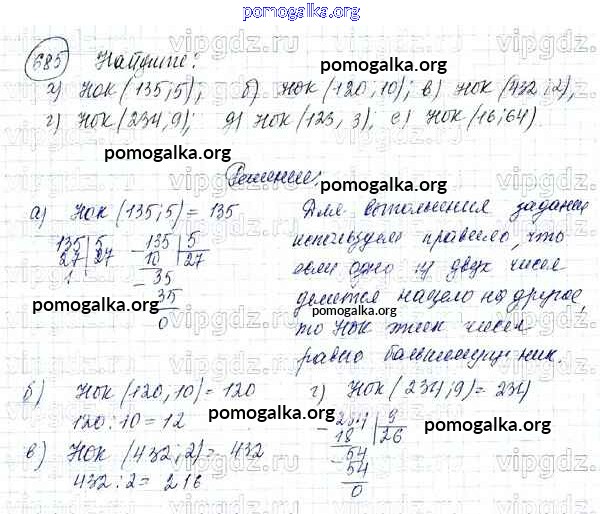 pomogalka.org
685 Найдите:
а) НОК (135;5); б) НОК (120;10); в) НОК (432;2);
г) НОК (234,9); д) НОК (123, 3); е) НОК (16;64)
pomogalka.org
Решение:
а) НОК (135;5) = 135
135 | 5
27 | 27
1
135 | 5
10 | 27
35
35
0
Для выполнения задания
используем правило, что
если одно из двух чисел
делится нацело на другое,
то НОК этих чисел
равно большему из них.
pomogalka.org
б) НОК (120,10) = 120
120:10 = 12
в) НОК (432;2) = 432
432:2 = 216
г) НОК (234,9) = 234
234 | 9
18 | 26
54
54
0
pomogalka.org
vipgdz.ru